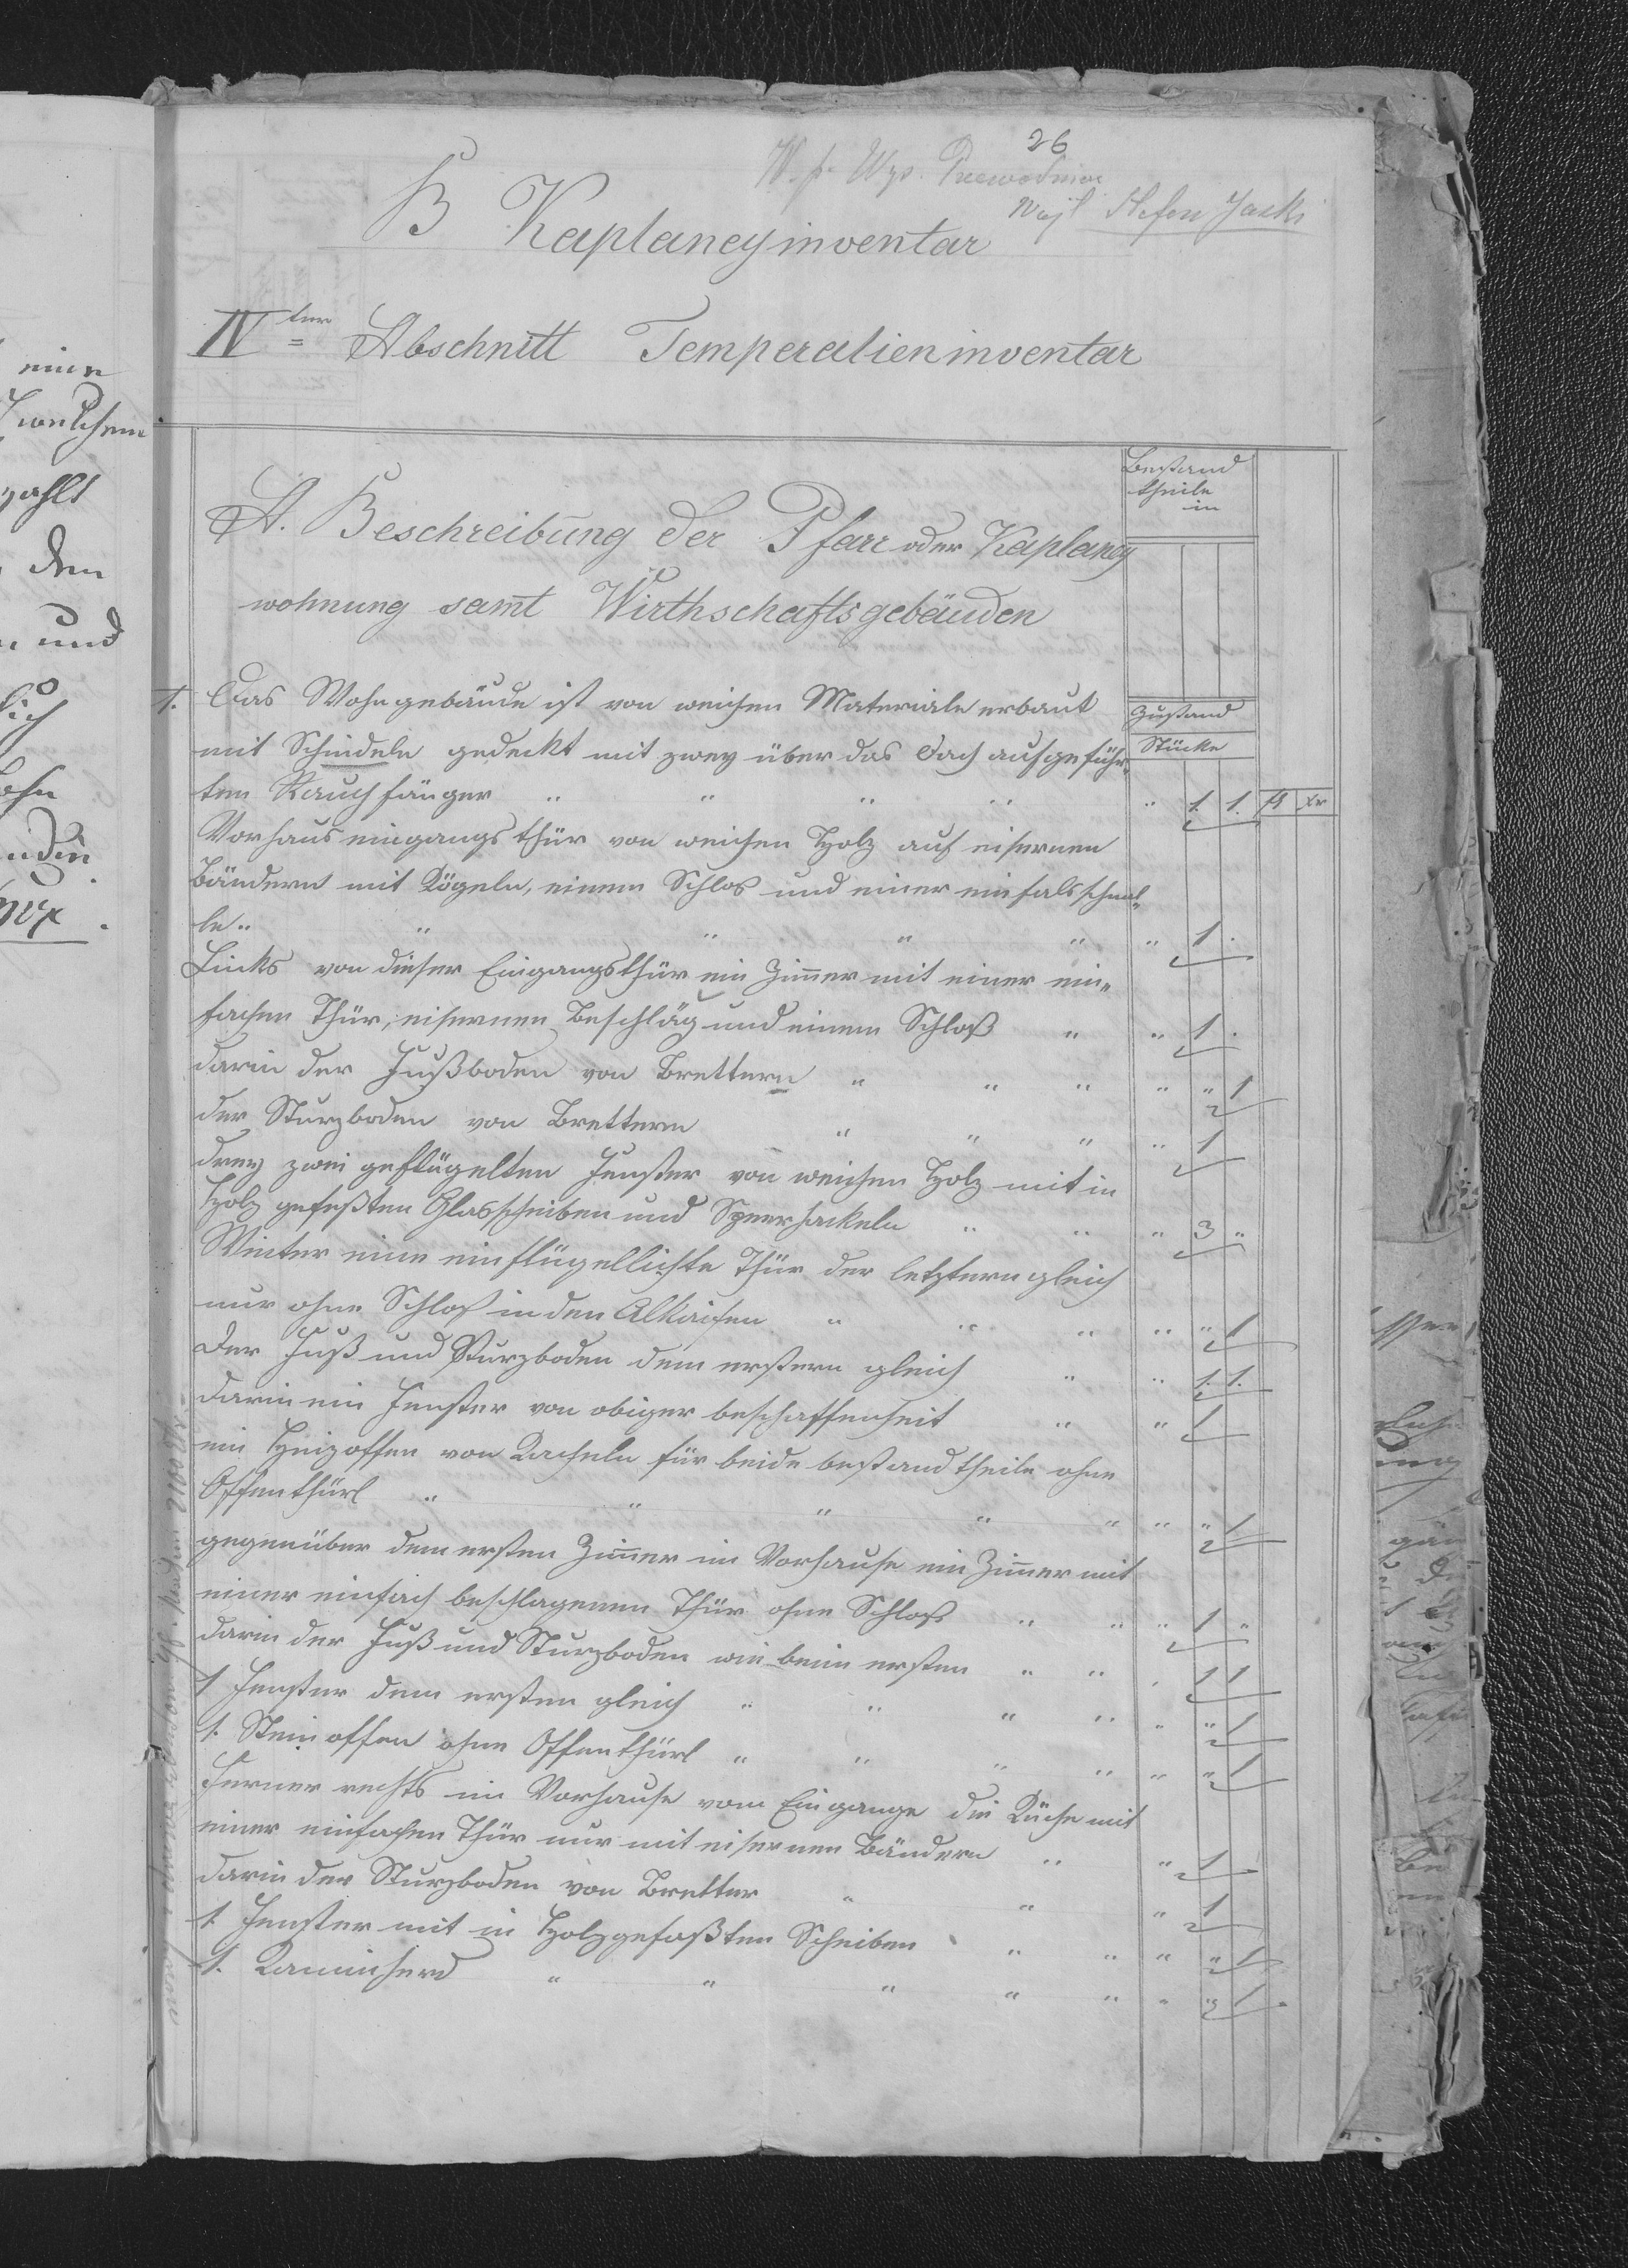 26
B Kaplaneyinventar
IV ter Abschnitt Temperalieninventar
Bestand
theile
in
A. Beschreibung der Pfarr oder Kaplaney
wohnung samt Wirthschaftsgebäuden
Zustand
Stücke
fl xr
1. Das Wohngebäude ist von weichen Materiale erbaut
mit Schindeln gedeckt mit zwey über das Dach ausgeführ„
ten Rauchfänger " " " " " 1. 1.
Vorhauseingangsthür von weichen Holz auf eisernen
Bändern mit Kögeln, einem Schlos und einer einfalsschnal„
le " " " " " " 1 .
Links von dieser Eingangsthür ein Zimmer mit einer ein„
fachen Thür, eisernen Beschläg und einem Schloß " " 1 .
darin der Fußboden von Brettern " " " " " 1
der Sturzboden von Brettern " " " " 1
drey zwei geflügelten Fenster von weichen Holz mit in
Holz gefeßten Glasscheiben und Sperrhackeln " " " 3 "
Weiter eine einflügellichte Thür der letztern gleich
nur ohne Schloß in den Alkaisen " " " " " 1
Der Fuß und Sturzboden dem erstern gleich " " 1. 1.
darin ein Fenster von obiger beschaffenheit " " 1
ein Heizoffen von Kacheln für beide bestandtheile ohne
Offenthürl " " " " " " " 1
gegenüber dem ersten Zimmer im Vorhause ein Zimmer mit
einer einfach beschlagenen Thür ohne Schloß " " " 1 "
darin der Fuß und Sturzboden wie beim ersten " " " 1 1
1 Fenster dem ersten gleich " " " " " " 1
1. Steinoffen ohne Offenthürl " " " " " " 1
Ferner rechts im Vorhause vom Eingange die Küche mit
einer einfachen Thür nur mit eisernen Bändern " " 1
darin der Sturzboden von Bretter " " " 1
1 Fenster mit in Holz gefaßten Scheiben " " " " 1
1. Kaminherd " " " " " " " 1